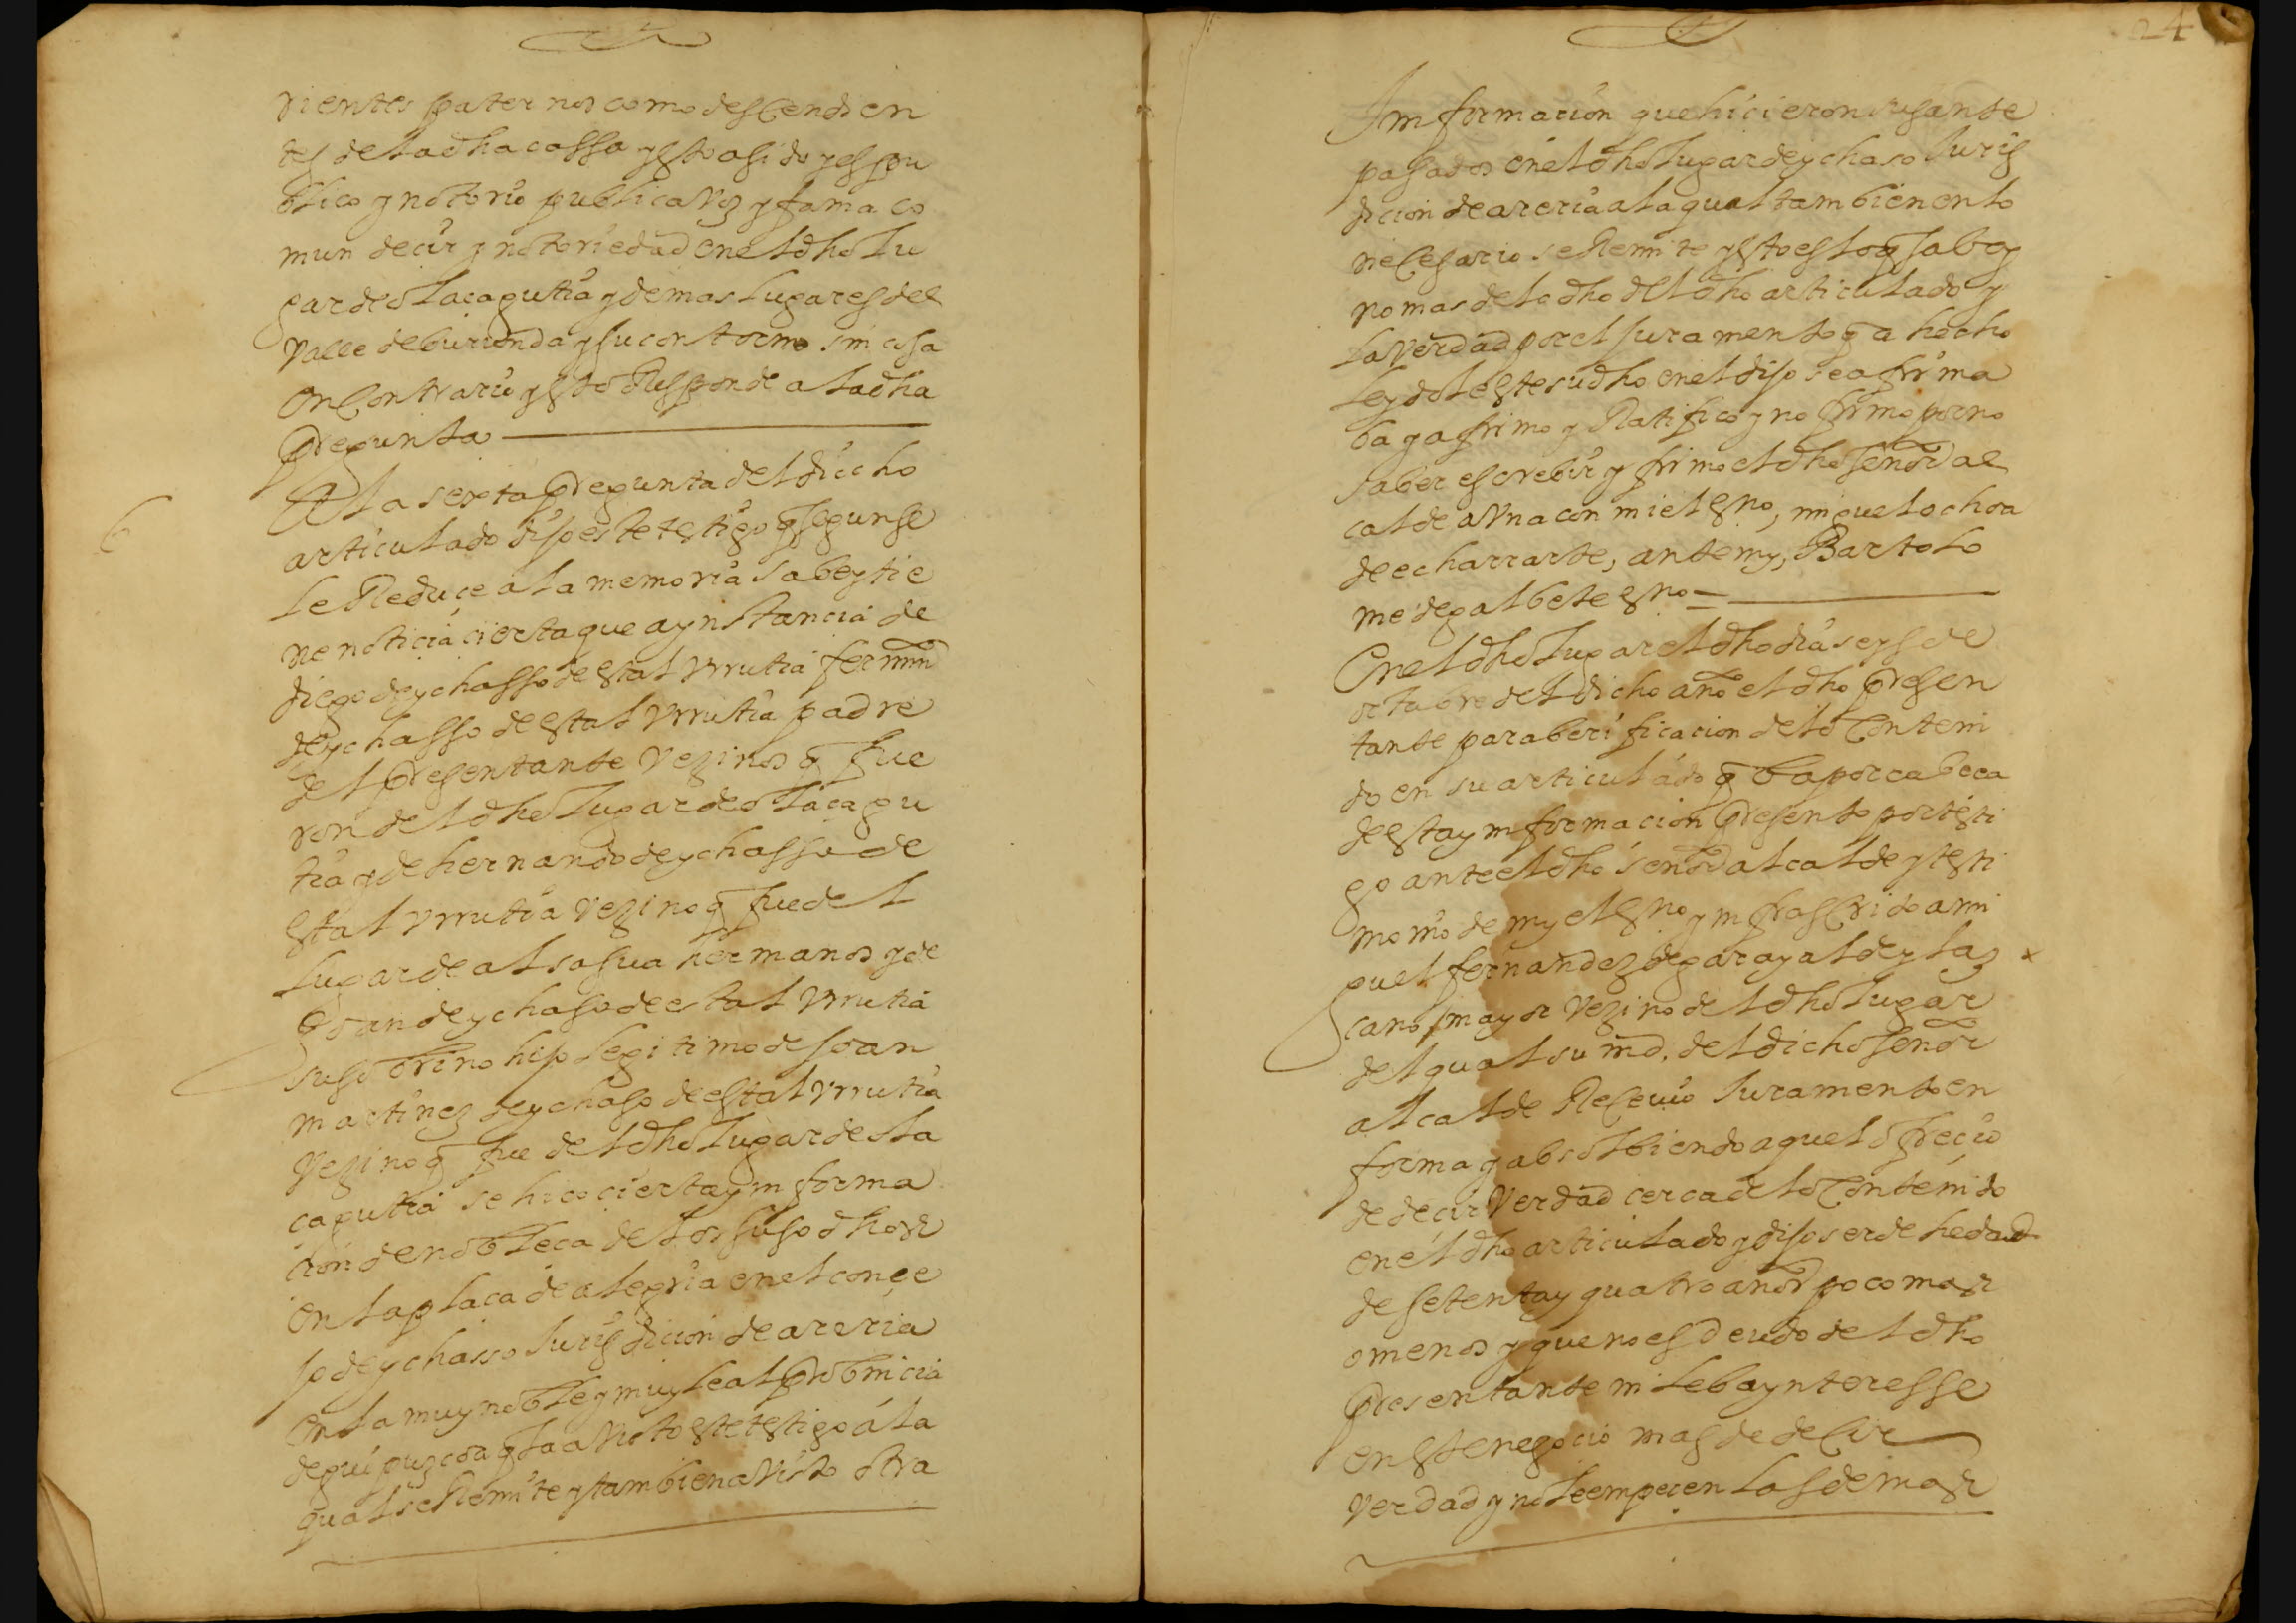 rientes paternos como descendien
tes de la dha cassa y esto a sido y es pu
blico y notorio publica voz y fama co
mun decir y notoriedad en el dho lu
gar de olaçagutia y demas lugares del
valle de burunda y su contorno sin cosa
en contrario y esto Responde a la dha
Pregunta
6
A la sexta Pregunta del diccho
articulado dijo este testigo q segun se
le Reduçe a la memoria sabe y tie
ne noticia cierta que a ynstancia de
diego de ychasso de estal Vrrutia fermin
de ychasso de estal Vrrutia padre
del Presentante Vezinos q fue
ron del dho lugar de olaçagu
tia y de hernando de ychasso de
estal Vrrutia Vezino q fue del
lugar de alsasua hermanos y de
Joan de ychaso de estal Vrrutia
su sobrino hijo legitimo de Joan
martinez de ychaso de estal Vrrutia
Vezino q fue del dho lugar de ola
çagutia se hiço cierta ynforma
cion de nobleça de los suso dhos
en la plaça de alegria en el conçe
jo de ychasso Jurisdicion de areria
en la muy noble y muy leal Probincia
de guipuzcoa q la a visto este testigo á la
qual se Remite y tambien a visto otra
24
Imformacion que hicieron sus ante
pasados en el dho lugar de ychaso Juris
dicion de areria a la qual tambien en lo
neçesario se Remite y esto es lo q sabe y
no mas de lo dho del dho articulado y
la verdad por el Juramento q a hecho
leydole este su dho en el dijo se afirma
ba y afirmo y Ratifico y no firmo por no
saber escrebir y firmo el dho señor al
calde a vna con mi el esno, miguel ochoa
de echarrarte, ante my, Bartolo
me de galbete esno =
En el dho lugar el dho dia seys de
octubre del dicho año el dho Presen
tante para berificacion de lo Conteni
do en su articulado q ba por cabeca
de esta ynformacion Presento por testi
go ante el dho señor alcalde y testi
monio de my el esno ynfrascrido a mi
guel fernandez de garayalde y laz
cano mayor vezino del dho lugar
del qual su md. del dicho señor
alcalde Reçeuio Juramento en
forma y absolbiendo aquel ofreçio
de decir verdad cerca de lo Contenido
en el dho articulado y dijo ser de hedad
de setenta y quatro años poco mas
o menos y que no es deudo del dho
Presentante ni le ba ynteresse
en este negocio mas de deçir
verdad y no le empeçen las demas